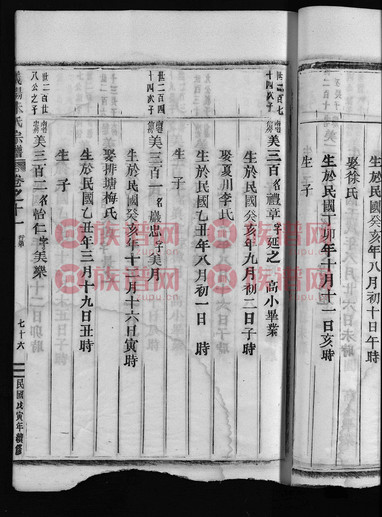 生於民國癸亥年八月初十日午時
娶徐氏
生於民國丁卯年十月十一日亥時
生子
世二百七十四武子
美三百名禮章字延之 高小畢業
生於民國癸亥年九月初二日子時
娶夏川李氏
生於民國乙丑年八月初一日 時
生子
世二百四十四武子
美三百一名巖忠字美月
生於民國癸亥年十二月十六日寅時
娶排塘梅氏
生於民國乙丑年三月十九日丑時
生子
世二百廿八公之子
美三百二名怡仁字美璨
陽朱氏宗譜 卷之十一 七十六 民國戊寅年續修
族譜網